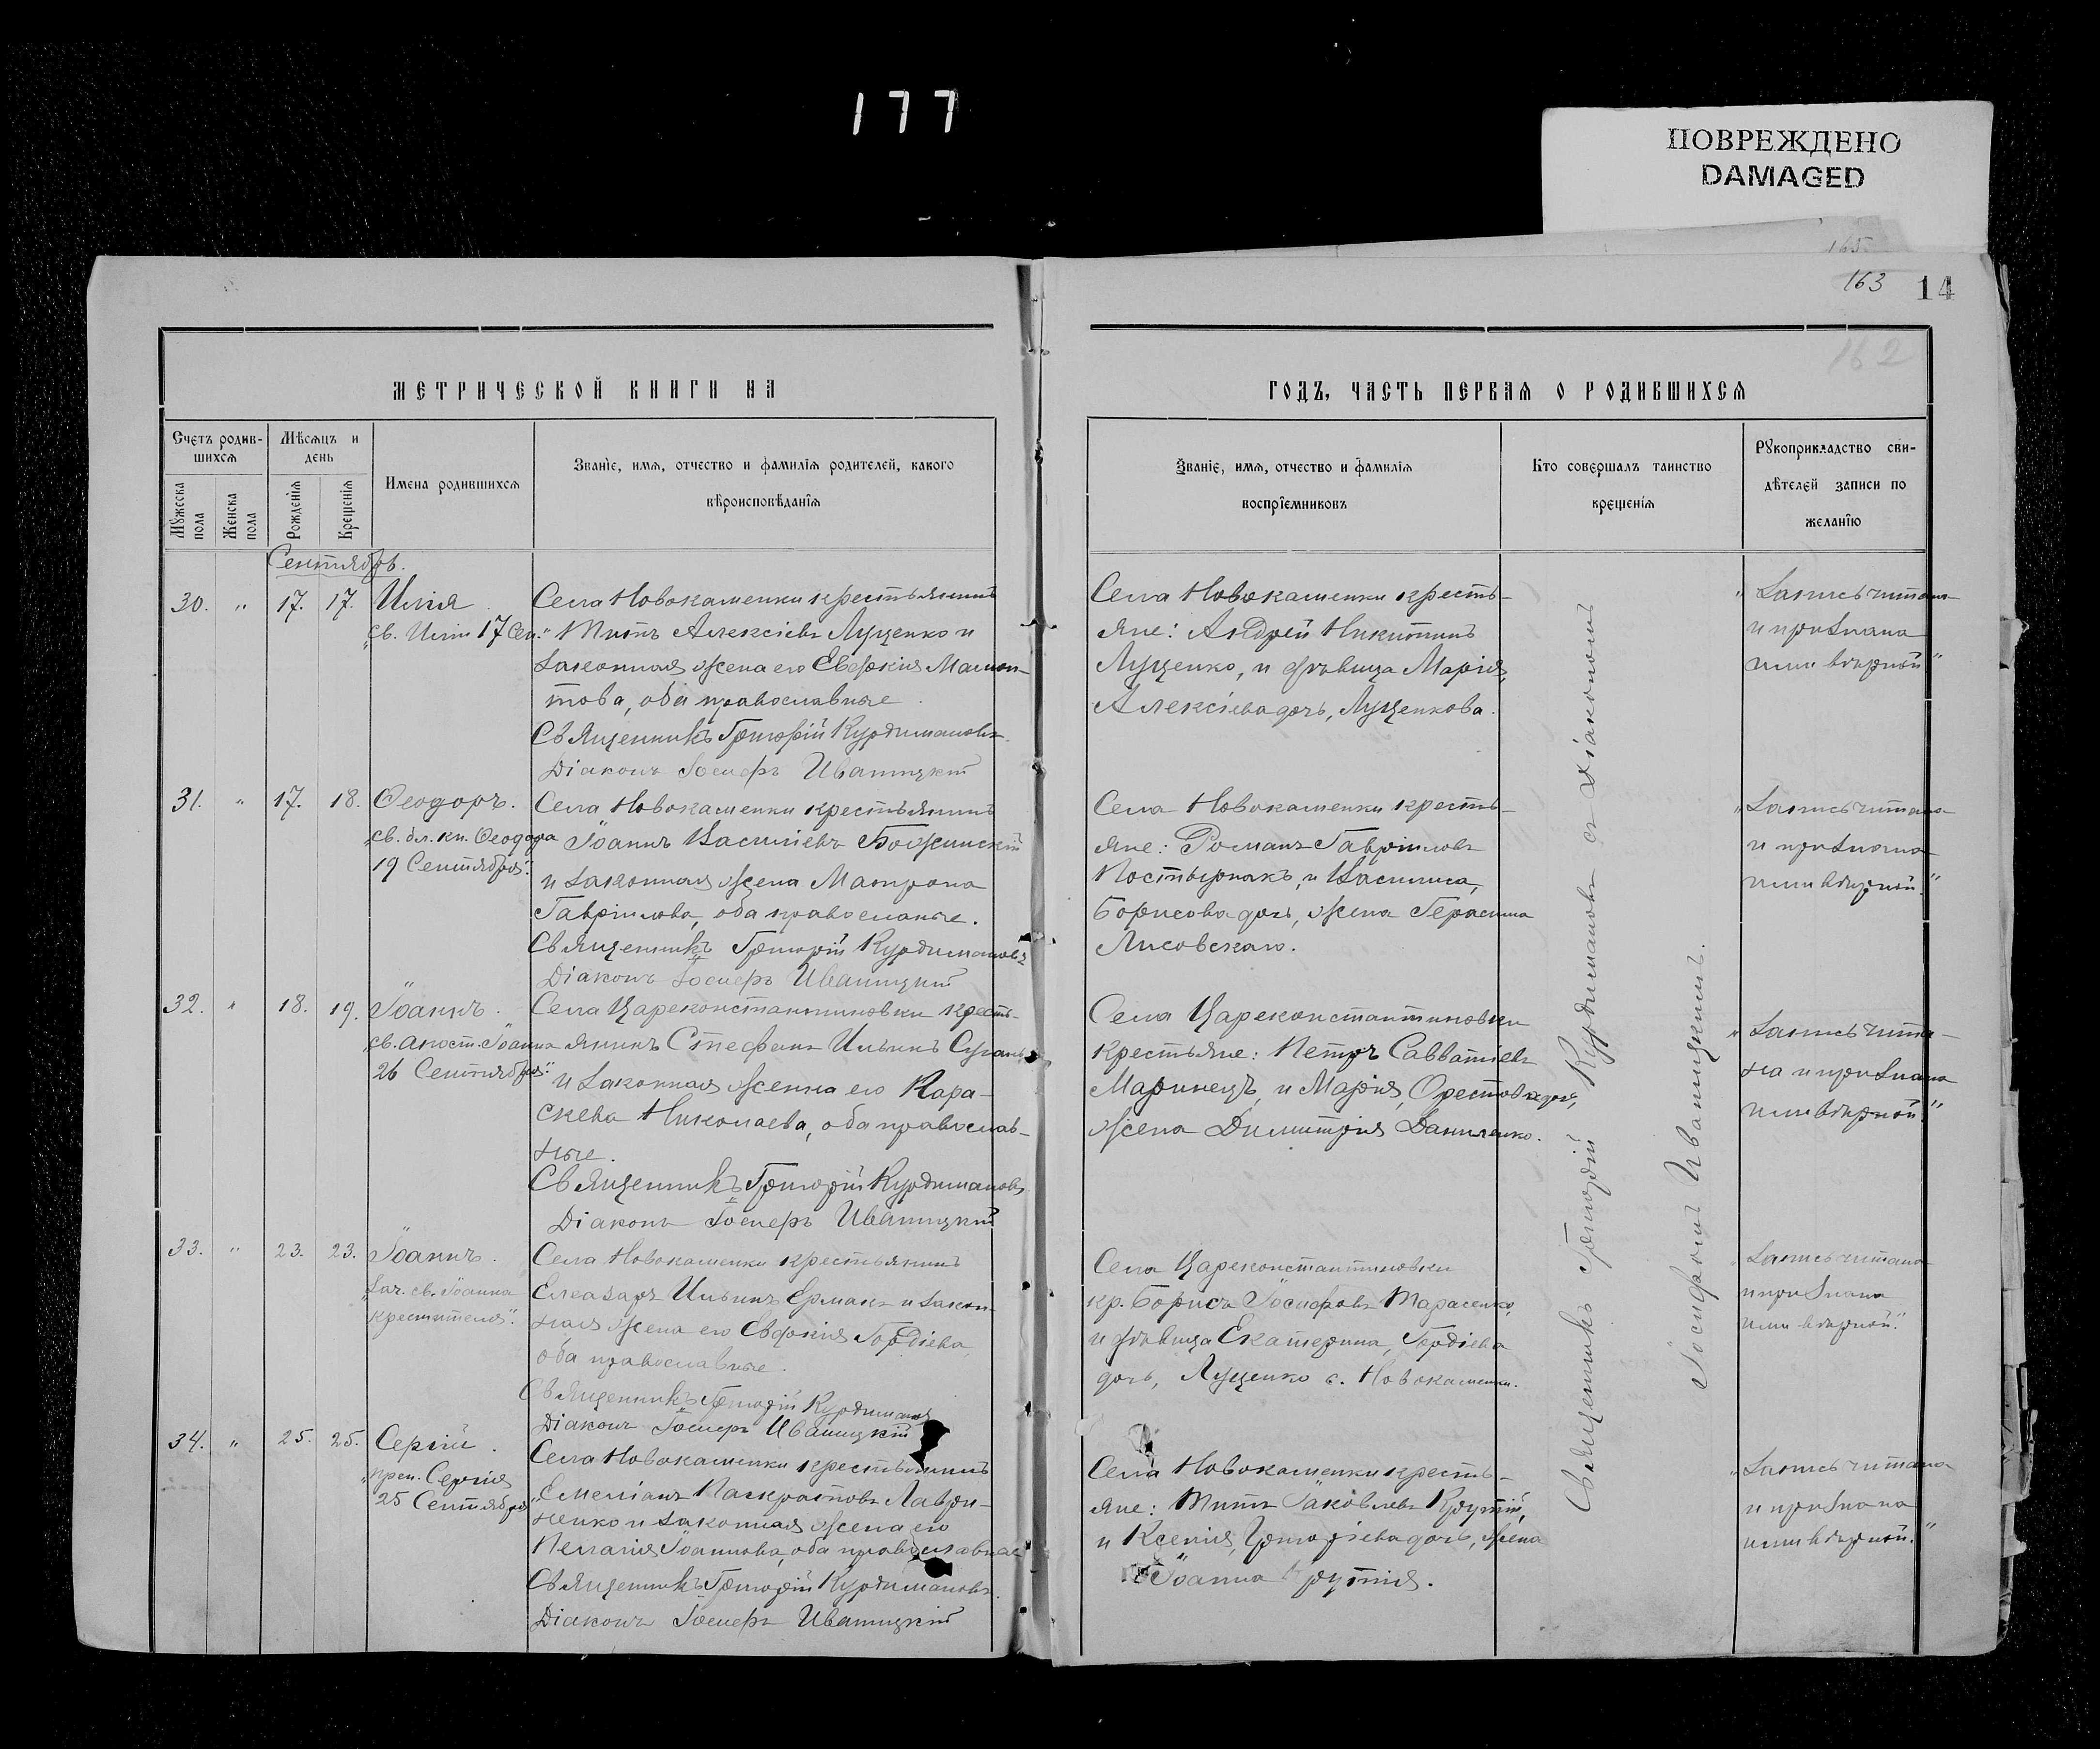 177
ПОВРЕЖДЕНО
DAMAGED
165
163 14
162
МЕТРИЧЕСКОЙ КНИГИ НА
ГОДЪ, ЧАСТЬ ПЕРВАЯ О РОДИВШИХСЯ
Счетъ родив-
шихся
Мѣсяцъ и
день
Мужеска
пола
Женска
пола
Рожденія
Крещенія
Имена родившихся
Званіе, имя, отчество и фамилія родителей, какого
вѣроисповѣданія
Званіе, имя, отчество и фамилія
воспріемниковъ
Кто совершалъ таинство
крещенія
Рукоприкладство сви-
дѣтелей записи по
желанію
Сентябрь.
30. " 17. 17. Илія
"св. Иліи 17 Сен."
Села Новокаменки крестьянинъ
Титъ Алексіевъ Луценко и
законная жена его Евдокія Мамон-
това, оба православные
Священникъ Григорій Курдимановъ
Діаконъ Іосифъ Иваницкій
Села Новокаменки кресть-
яне: Андрей Никитинъ
Луценко, и дѣвица Марія,
Алексіева дочь, Луценкова.
"Запись читана
и признана
ими вѣрной"
31. " 17. 18. Ѳеодоръ.
"св. бл. кн. Ѳеодора
19 Сентября".
Села Новокаменки крестьянинъ
Іоаннъ Василіевъ Божинскій
и законная жена Матрона
Гавріилова, оба православные.
Священникъ Григорій Курдимановъ
Діаконъ Іосифъ Иваницкій
Села Новокаменки кресть-
яне: Романъ Гавріиловъ
Постернакъ, и Василиса,
Борисова дочь, жена Герасима
Лисовскаго.
"Запись читана
и признана
ими вѣрной."
32. " 18. 19. Іоаннъ.
"св. апост. Іоанна
26 Сентября".
Села Цареконстантиновки кресть-
янинъ Стефанъ Ильинъ
и законная жена его Пара-
скева Николаева, оба православ-
ные.
Священникъ Григорій Курдимановъ
Діаконъ Іосифъ Иваницкій
Села Цареконстантиновки
крестьяне: Петръ Савватіевъ
Маринецъ, и Марія, Орестова дочь,
жена Димитрія Даниленко.
"Запись чита-
на и признана
ими вѣрной."
33. " 23. 23. Іоаннъ.
"Зач. св. Іоанна
крестителя".
Села Новокаменки крестьянинъ
Елеазаръ Ильинъ Ермакъ и закон-
ная жена его Евдокія Гордіева,
оба православные.
Священникъ Григорій Курдимановъ
Діаконъ Іосифъ Иваницкій
Села Цареконстантиновки
кр. Борисъ Іосифовъ Тарасенко,
и дѣвица Екатерина, Гордіева
дочь, Луценко с. Новокаменки.
"Запись читана
и признана
ими вѣрной."
34. " 25. 25. Сергій.
"преп. Сергія
25 Сентября"
Села Новокаменки крестьянинъ
Емеліанъ Панкратовъ Лаври-
ненко и законная жена его
Пелагія Іоаннова, оба православные
Священникъ Григорій Курдимановъ.
Діаконъ Іосифъ Иваницкій
Села Новокаменки кресть-
яне: Титъ Іаковлевъ Крутій,
и Ксенія, Григоріева дочь, жена
Іоанна Крутія.
"Запись читана
и признана
ими вѣрной."
Священникъ Григорій Курдимановъ съ Діакономъ
Іосифомъ Иваницкимъ.